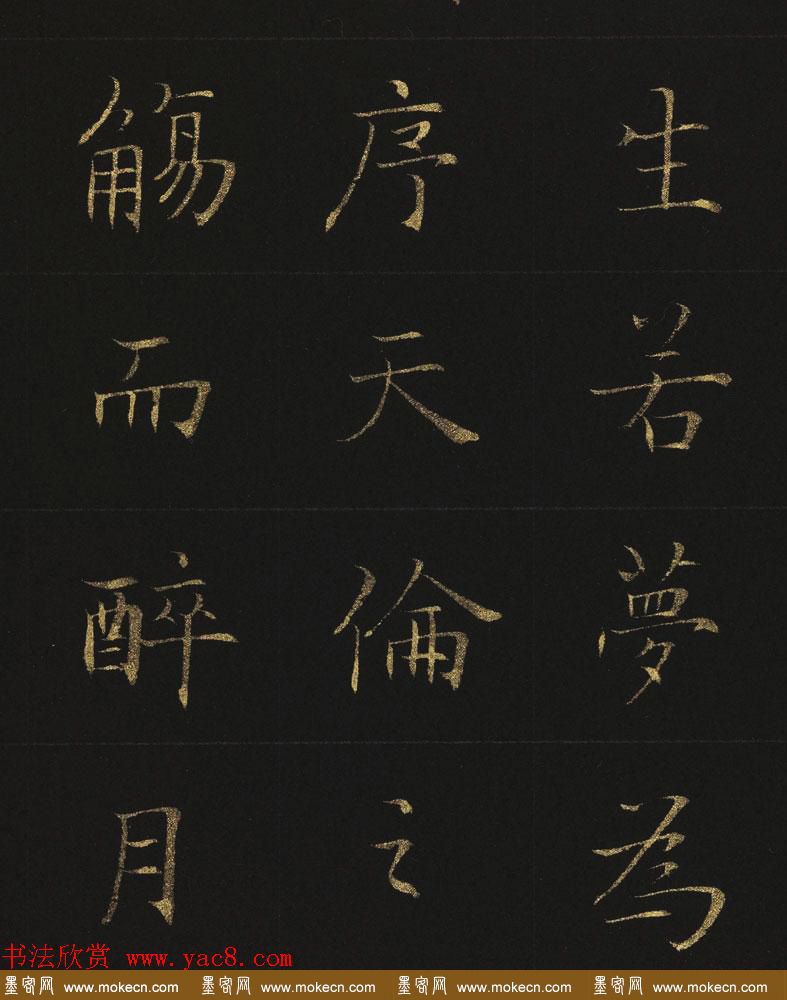 生若夢為
序天倫之
觴而醉月
书法欣赏 www.yac8.com
墨客网 www.mokecn.com 墨客网 www.mokecn.com 墨客网 www.mokecn.com 墨客网 www.mokecn.com